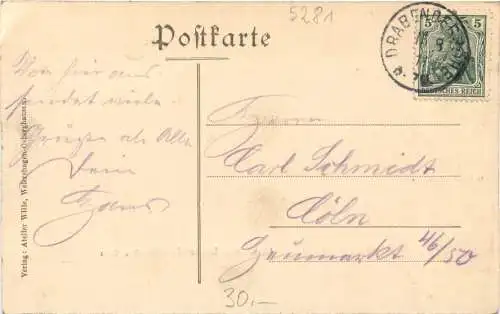 5281
Postkarte
5 5
DEUTSCHES REICH
DRABENDERHÖHE
Von hier aus
sendet viele
Grüße an Alle
Dein
Hans
Herrn
Carl Schmidt
Cöln
Heumarkt 46/50
30.—
Verlag: Atelier Wille, Wallerhagen-Oeberghausen.